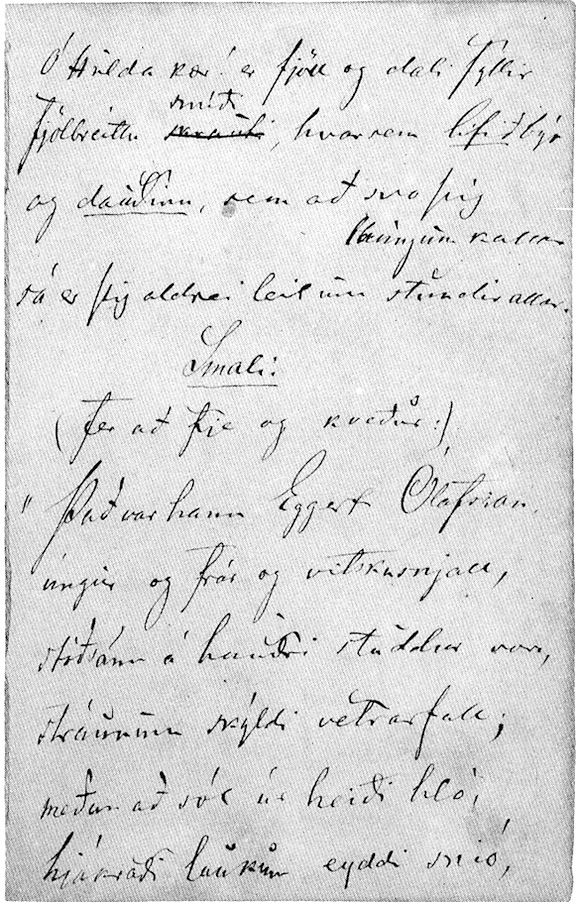 Ó Hulda kær! er fjöll og dali fyllir
smíði
fjölbreittu skrauti, hvar sem lífið býr
og dauðinn, sem að svo þig
laungum kallar
sá er þig aldrei leit um stundir allar.
Smali:
(fer að fje og kveður:)
"Það var hann Eggert Ólafsson,
ungur og frár og vitskusnjall,
stóð'ann á hauðri studdur von,
stráunum skýldi vetrarfall;
meðan að sól úr heiði hló,
hjúkraði laukum eyddi snió,